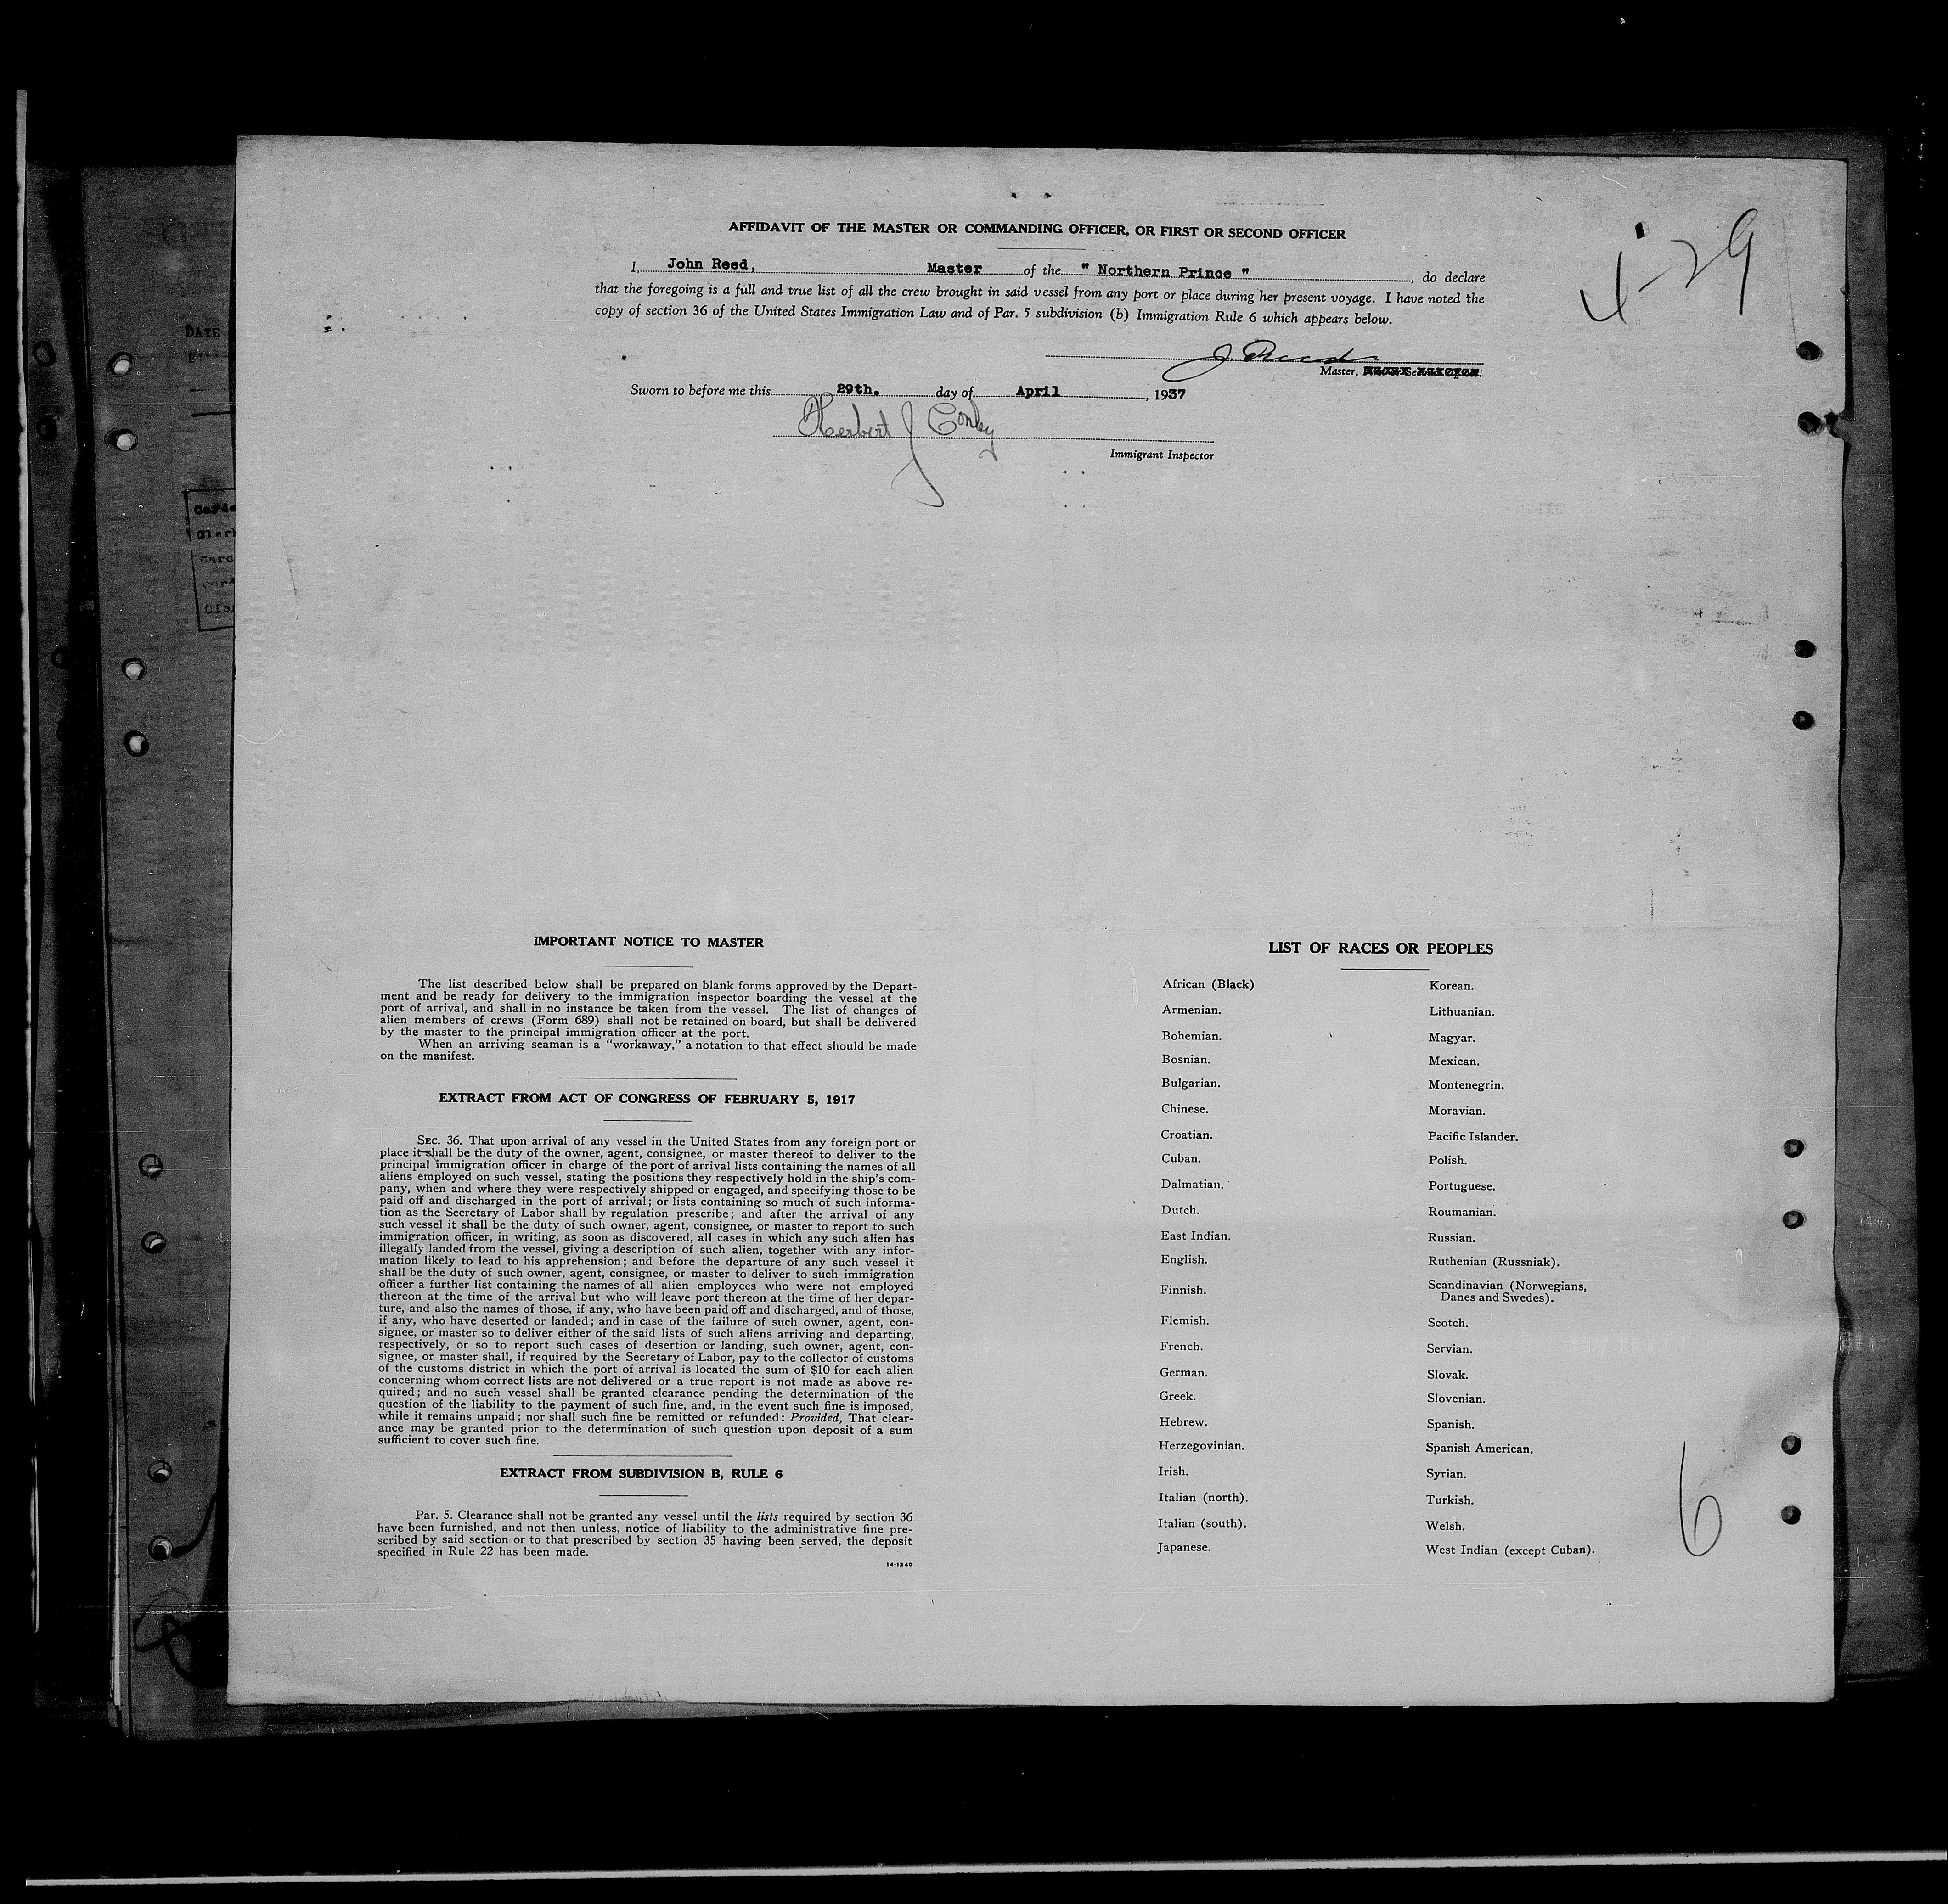 AFFIDAVIT OF THE MASTER OR COMMANDING OFFICER, OR FIRST OR SECOND OFFICER
4-29
I, John Reed, Master of the " Northern Prince ", do declare
that the foregoing is a full and true list of all the crew brought in said vessel from any port or place during her present voyage. I have noted the
copy of section 36 of the United States Immigration Law and of Par. 5 subdivision (b) Immigration Rule 6 which appears below.
J. Reed
Master,
Sworn to before me this 29th. day of April, 1937
Herbert J Conley
Immigrant Inspector
DATE
IMPORTANT NOTICE TO MASTER
The list described below shall be prepared on blank forms approved by the Depart-
ment and be ready for delivery to the immigration inspector boarding the vessel at the
port of arrival, and shall in no instance be taken from the vessel. The list of changes of
alien members of crews (Form 689) shall not be retained on board, but shall be delivered
by the master to the principal immigration officer at the port.
When an arriving seaman is a "workaway," a notation to that effect should be made
on the manifest.
EXTRACT FROM ACT OF CONGRESS OF FEBRUARY 5, 1917
SEC. 36. That upon arrival of any vessel in the United States from any foreign port or
place it shall be the duty of the owner, agent, consignee, or master thereof to deliver to the
principal immigration officer in charge of the port of arrival lists containing the names of all
aliens employed on such vessel, stating the positions they respectively hold in the ship's com-
pany, when and where they were respectively shipped or engaged, and specifying those to be
paid off and discharged in the port of arrival; or lists containing so much of such informa-
tion as the Secretary of Labor shall by regulation prescribe; and after the arrival of any
such vessel it shall be the duty of such owner, agent, consignee, or master to report to such
immigration officer, in writing, as soon as discovered, all cases in which any such alien has
illegally landed from the vessel, giving a description of such alien, together with any infor-
mation likely to lead to his apprehension; and before the departure of any such vessel it
shall be the duty of such owner, agent, consignee, or master to deliver to such immigration
officer a further list containing the names of all alien employees who were not employed
thereon at the time of the arrival but who will leave port thereon at the time of her depar-
ture, and also the names of those, if any, who have been paid off and discharged, and of those,
if any, who have deserted or landed; and in case of the failure of such owner, agent, con-
signee, or master so to deliver either of the said lists of such aliens arriving and departing,
respectively, or so to report such cases of desertion or landing, such owner, agent, con-
signee, or master shall, if required by the Secretary of Labor, pay to the collector of customs
of the customs district in which the port of arrival is located the sum of $10 for each alien
concerning whom correct lists are not delivered or a true report is not made as above re-
quired; and no such vessel shall be granted clearance pending the determination of the
question of the liability to the payment of such fine, and, in the event such fine is imposed,
while it remains unpaid; nor shall such fine be remitted or refunded: Provided, That clear-
ance may be granted prior to the determination of such question upon deposit of a sum
sufficient to cover such fine.
EXTRACT FROM SUBDIVISION B, RULE 6
Par. 5. Clearance shall not be granted any vessel until the lists required by section 36
have been furnished, and not then unless, notice of liability to the administrative fine pre-
scribed by said section or to that prescribed by section 35 having been served, the deposit
specified in Rule 22 has been made.
14-1240
LIST OF RACES OR PEOPLES
African (Black)
Armenian.
Bohemian.
Bosnian.
Bulgarian.
Chinese.
Croatian.
Cuban.
Dalmatian.
Dutch.
East Indian.
English.
Finnish.
Flemish.
French.
German.
Greek.
Hebrew.
Herzegovinian.
Irish.
Italian (north).
Italian (south).
Japanese.
Korean.
Lithuanian.
Magyar.
Mexican.
Montenegrin.
Moravian.
Pacific Islander.
Polish.
Portuguese.
Roumanian.
Russian.
Ruthenian (Russniak).
Scandinavian (Norwegians,
Danes and Swedes).
Scotch.
Servian.
Slovak.
Slovenian.
Spanish.
Spanish American.
Syrian.
Turkish.
Welsh.
West Indian (except Cuban).
6